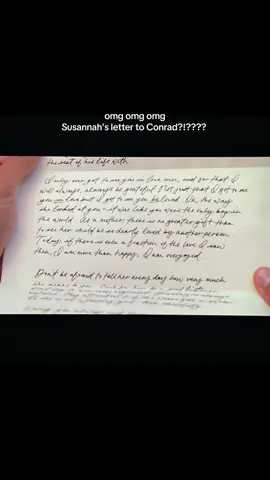 omg omg omg
Susannah's letter to Conrad?!????
the rest of his life with.
I only ever got to see you in love once, and for that I
will always, always be grateful. Not just that I got to see
you in love but I got to see you be loved. Oh, the way
she looked at you—it was like you were the only boy in
the world. As a mother, there is no greater gift than
to see her child be so dearly loved by another person.
Today, if there is even a fraction of the love I saw
then, I am more than happy, I am overjoyed.
Don't be afraid to tell her every day how very much
she means to you.